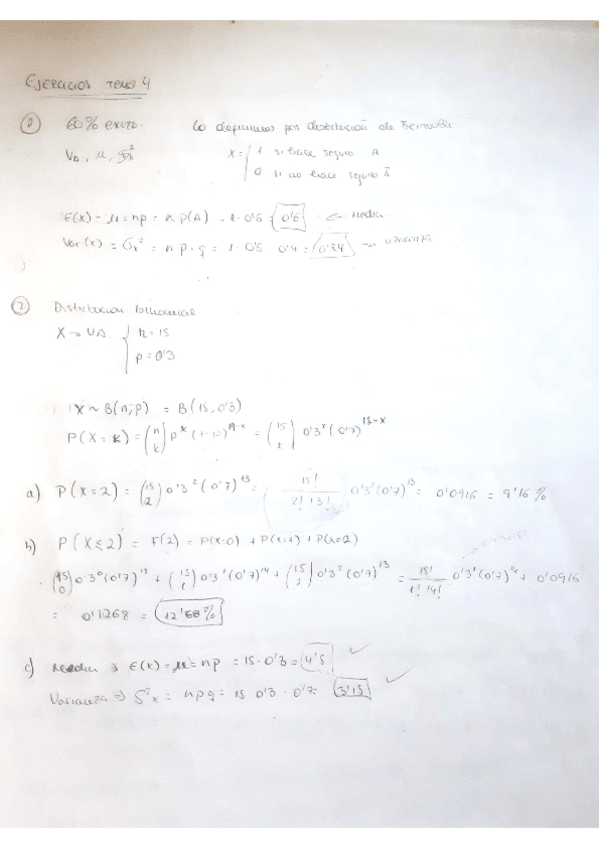 EJERCICIOS TEMA 4
① 60% éxito. Lo disponemos por distribución de Bernoulli
VA, μ, σx²
X = { 1 si hace seguro A
0 si no hace seguro Ā
E(X) = μ = np = n p(A) = 1·0'6 = 0'6 ← Media
Var(x) = σx² = n p · q = 1·0'6 · 0'4 = 0'24 → varianza
② Distribución binomial
X → VA { n = 15
p = 0'3
X ~ B(n, p) = B(15, 0'3)
P(X = k) = (n k) p^k (1-p)^n-x = (15 k) 0'3^x (0'7)^15-x
a) P(X=2) = (15 2) 0'3² (0'7)^13 = 15! / 2! 13! 0'3² (0'7)^13 = 0'0916 = 9'16 %
b) P(X≤2) = F(2) = P(X=0) + P(X=1) + P(X=2)
(15 0) 0'3⁰ (0'7)^15 + (15 1) 0'3¹ (0'7)^14 + (15 2) 0'3² (0'7)^13 = 15! / 1! 14! 0'3¹ (0'7)^14 + 0'0916
= 0'1268 = 12'68%
c) Media → E(X) = μ = np = 15 · 0'3 = 4'5 ✓
Varianza ⇒ S²x = npq = 15 · 0'3 · 0'7 = 3'15 ✓